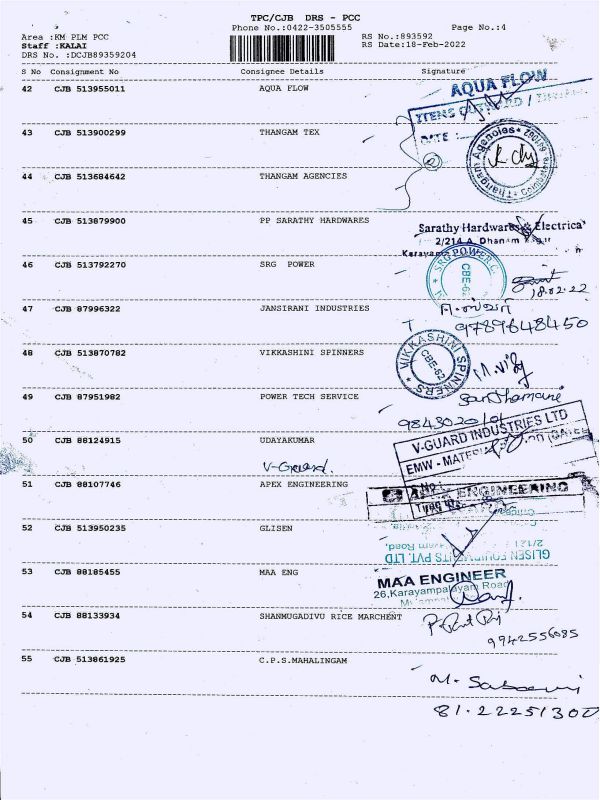 TPC/CJB DRS - PCC
Phone No.:0422-3505555 Page No.:4
Area :KM PLM PCC RS No.:893592
Staff :KALAI RS Date:18-Feb-2022
DRS No. :DCJB89359204
S No Consignment No Consignee Details Signature
42 CJB 513955011 AQUA FLOW
AQUA FLOW
DATE :
43 CJB 513900299 THANGAM TEX
Thangam Agencies
Coimbatore
44 CJB 513684642 THANGAM AGENCIES
45 CJB 513879900 PP SARATHY HARDWARES
Sarathy Hardwares & Electrical
2/214 A, Dhanam Nagar
46 CJB 513792270 SRG POWER
SRG POWER C
CBE-62
18.02.22
47 CJB 87996322 JANSIRANI INDUSTRIES
9789648450
48 CJB 513870782 VIKKASHINI SPINNERS
VIKKASHINI SPINNERS
CBE-62
49 CJB 87951982 POWER TECH SERVICE
50 CJB 88124915 UDAYAKUMAR
V-Guard
V-GUARD INDUSTRIES LTD
51 CJB 88107746 APEX ENGINEERING
ENGINEERING
52 CJB 513950235 GLISEN
GLISEN EQUIPMENTS PVT. LTD
53 CJB 88185455 MAA ENG
MAA ENGINEER
26,Karayampalayam Road
54 CJB 88133934 SHANMUGADIVU RICE MARCHENT
9942556085
55 CJB 513861925 C.P.S.MAHALINGAM
81.22251300